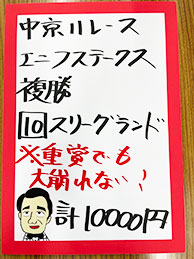 中京11レース
エニフステークス
複勝
10 スリーグランド
※重賞でも
大崩れない!
計10000円